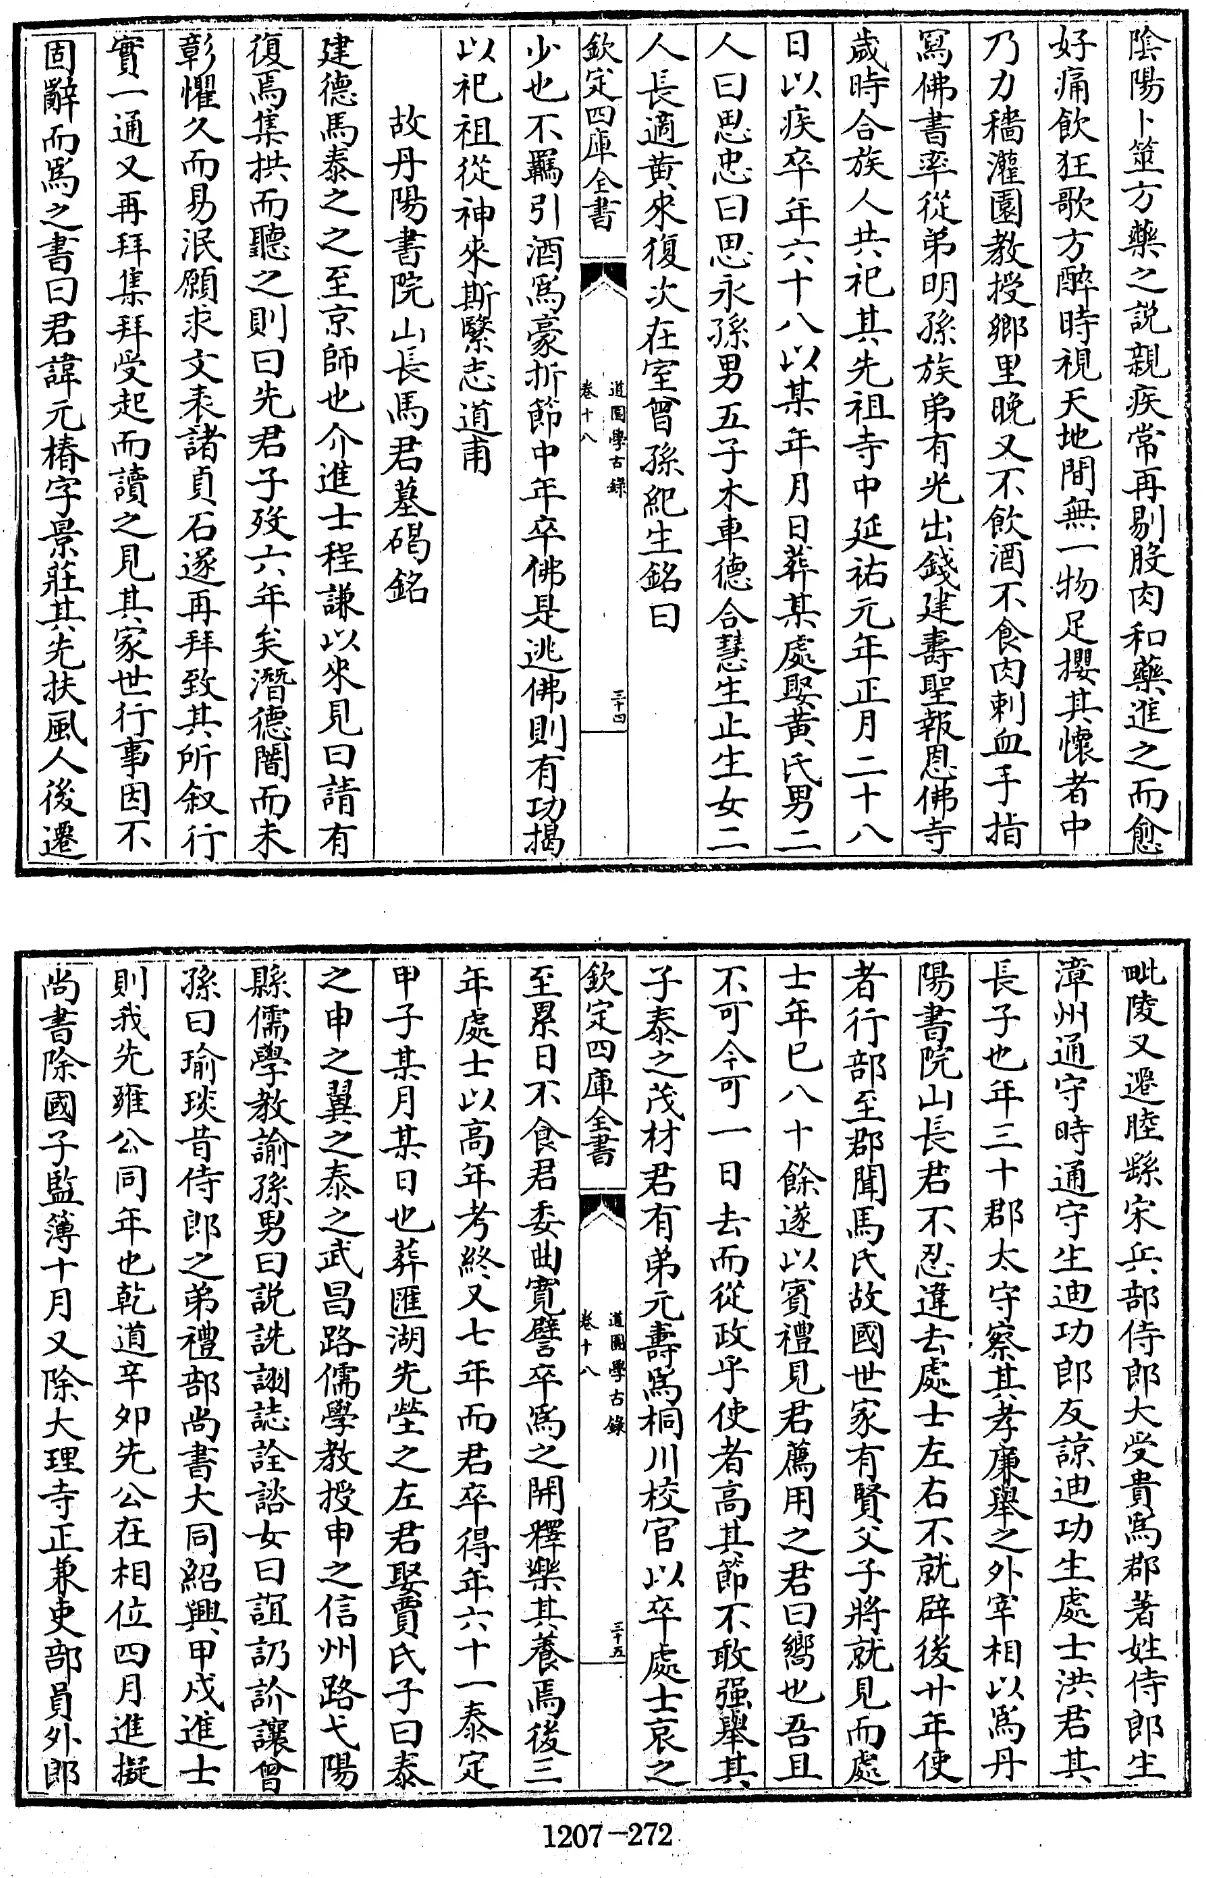 陰陽卜筮方藥之說親疾常再剔股肉和藥進之而愈
好痛飲狂歌方醉時視天地間無一物足攖其懷者中
乃力穡灌園教授鄉里晚又不飲酒不食肉刺血手指
寫佛書率從弟明孫族弟有光出錢建壽聖報恩佛寺
歲時合族人共祀其先祖寺中延祐元年正月二十八
日以疾卒年六十八以某年月日葬某處娶黃氏男二
人曰思忠曰思永孫男五子木車德合慧生止生女二
人長適黃來復次在室曾孫紀生銘曰
欽定四庫全書
道園學古錄
卷十八
三十四
少也不羈引酒爲豪折節中年卒佛是逃佛則有功揭
以祀祖從神來斯繄志道甫
故丹陽書院山長馬君墓碣銘
建德馬泰之之至京師也介進士程謙以來見曰請有
復焉集拱而聽之則曰先君子歿六年矣潛德闇而未
彰懼久而易泯願求文表諸貞石遂再拜致其所叙行
實一通又再拜集拜受起而讀之見其家世行事因不
固辭而爲之書曰君諱元椿字景莊其先扶風人後遷
毗陵又遷睦繇宋兵部侍郎大受貴爲郡著姓侍郎生
漳州通守時通守生迪功郎友諒迪功生處士洪君其
長子也年三十郡太守察其孝廉舉之外宰相以爲丹
陽書院山長君不忍違去處士左右不就辟後廿年使
者行部至郡聞馬氏故國世家有賢父子將就見而處
士年已八十餘遂以賓禮見君薦用之君曰嚮也吾且
不可今可一日去而從政乎使者高其節不敢强舉其
子泰之茂材君有弟元壽爲桐川校官以卒處士哀之
欽定四庫全書
道園學古錄
卷十八
三十五
至累日不食君委曲寬譬卒爲之開釋樂其養焉後三
年處士以高年考終又七年而君卒得年六十一泰定
甲子某月某日也葬匯湖先塋之左君娶賈氏子曰泰
之申之翼之泰之武昌路儒學教授申之信州路弋陽
縣儒學教諭孫男曰說詵詡誌詮諮女曰誼訒訡讓曾
孫曰瑜琰昔侍郎之弟禮部尚書大同紹興甲戍進士
則我先雍公同年也乾道辛卯先公在相位四月進擬
尚書除國子監簿十月又除大理寺正兼吏部員外郎
1207-272